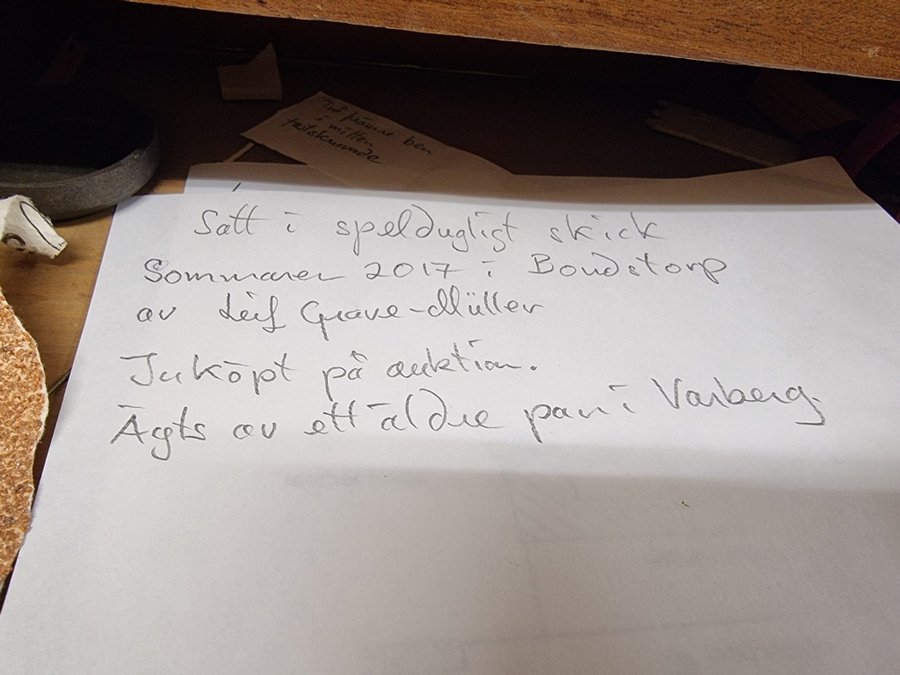 i mitten
Satt i speldugligt skick
Sommaren 2017 i Boudstorp
av Leif Grave-Müller
Inköpt på auktion.
Ägts av ett äldre par i Varberg.